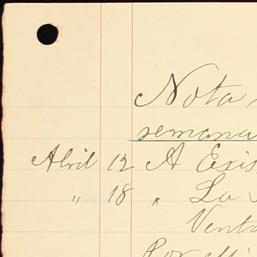 Nota
semana
Abril 12 A Exis
" 18 " La
Venta
Por